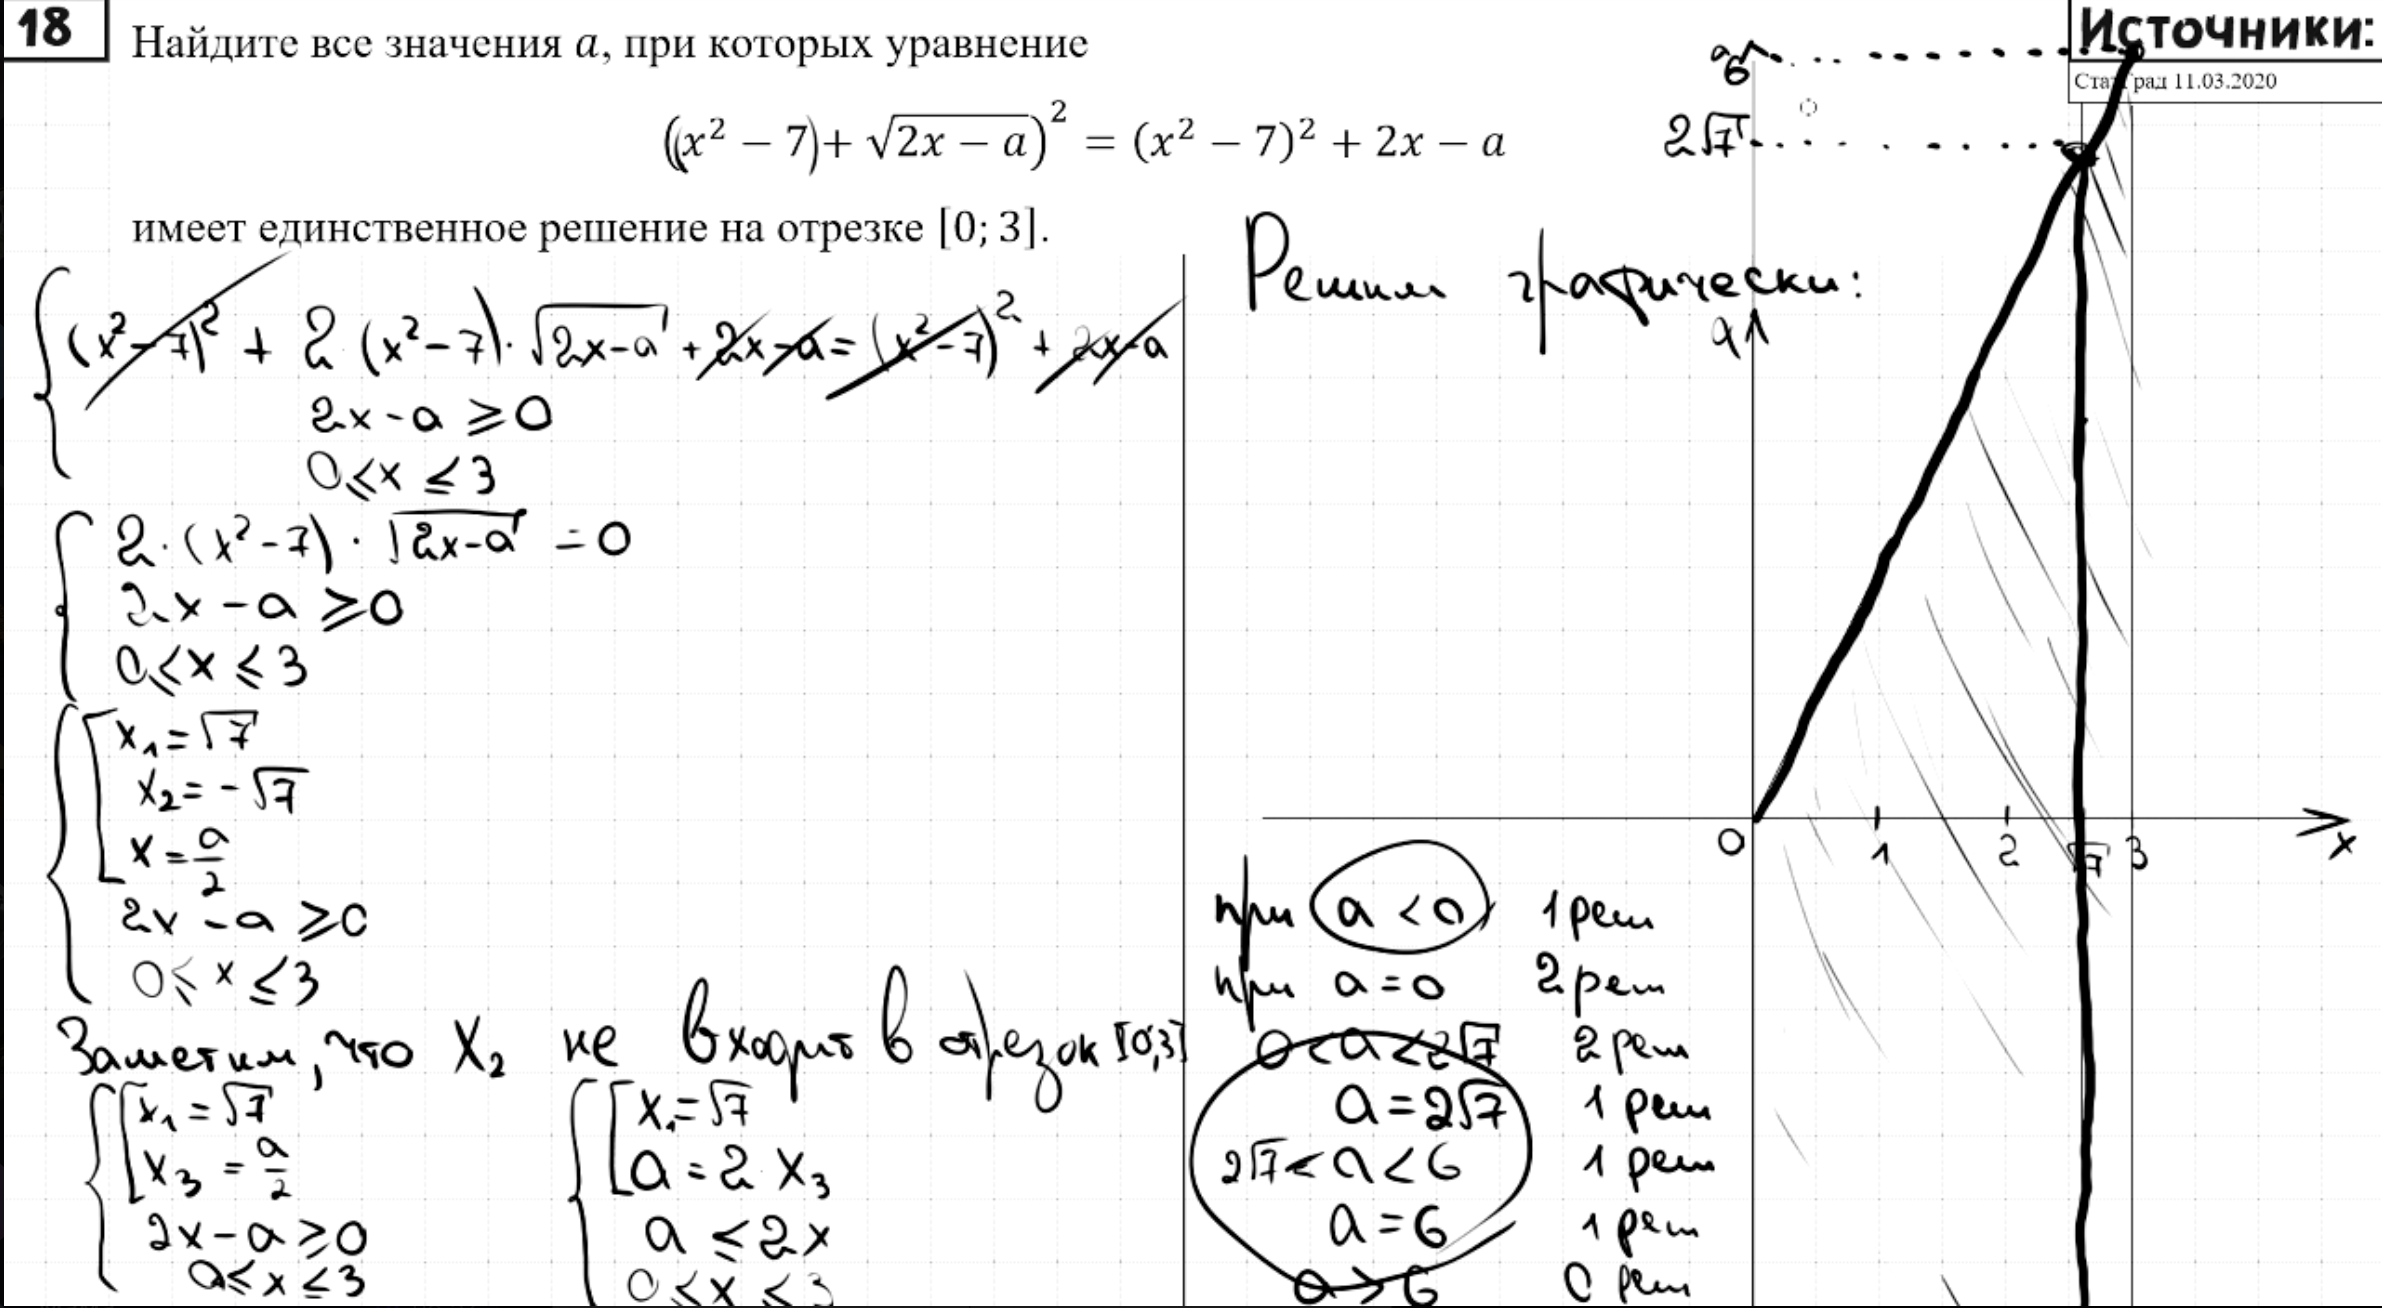 18
Найдите все значения a, при которых уравнение
((x² − 7) + √(2x − a))² = (x² − 7)² + 2x − a
имеет единственное решение на отрезке [0; 3].
Источники:
СтатГрад 11.03.2020
(x²−7)² + 2(x²−7)·√(2x−a) + 2x−a = (x²−7)² + 2x−a
2x−a ⩾ 0
0 ⩽ x ⩽ 3
2·(x²−7)·√(2x−a) = 0
2x−a ⩾ 0
0 ⩽ x ⩽ 3
x₁ = √7
x₂ = −√7
x = a/2
2x−a ⩾ 0
0 ⩽ x ⩽ 3
Заметим, что x₂ не входит в отрезок [0;3]
x₁ = √7
x₃ = a/2
2x−a ⩾ 0
0 ⩽ x ⩽ 3
x₁ = √7
a = 2·x₃
a ⩽ 2x
0 ⩽ x ⩽ 3
Решим графически:
a
a
6
2√7
0 1 2 √7 3 x
при a < 0 1 реш
при a = 0 2 реш
0 < a < 2√7 2 реш
a = 2√7 1 реш
2√7 < a < 6 1 реш
a = 6 1 реш
a > 6 0 реш